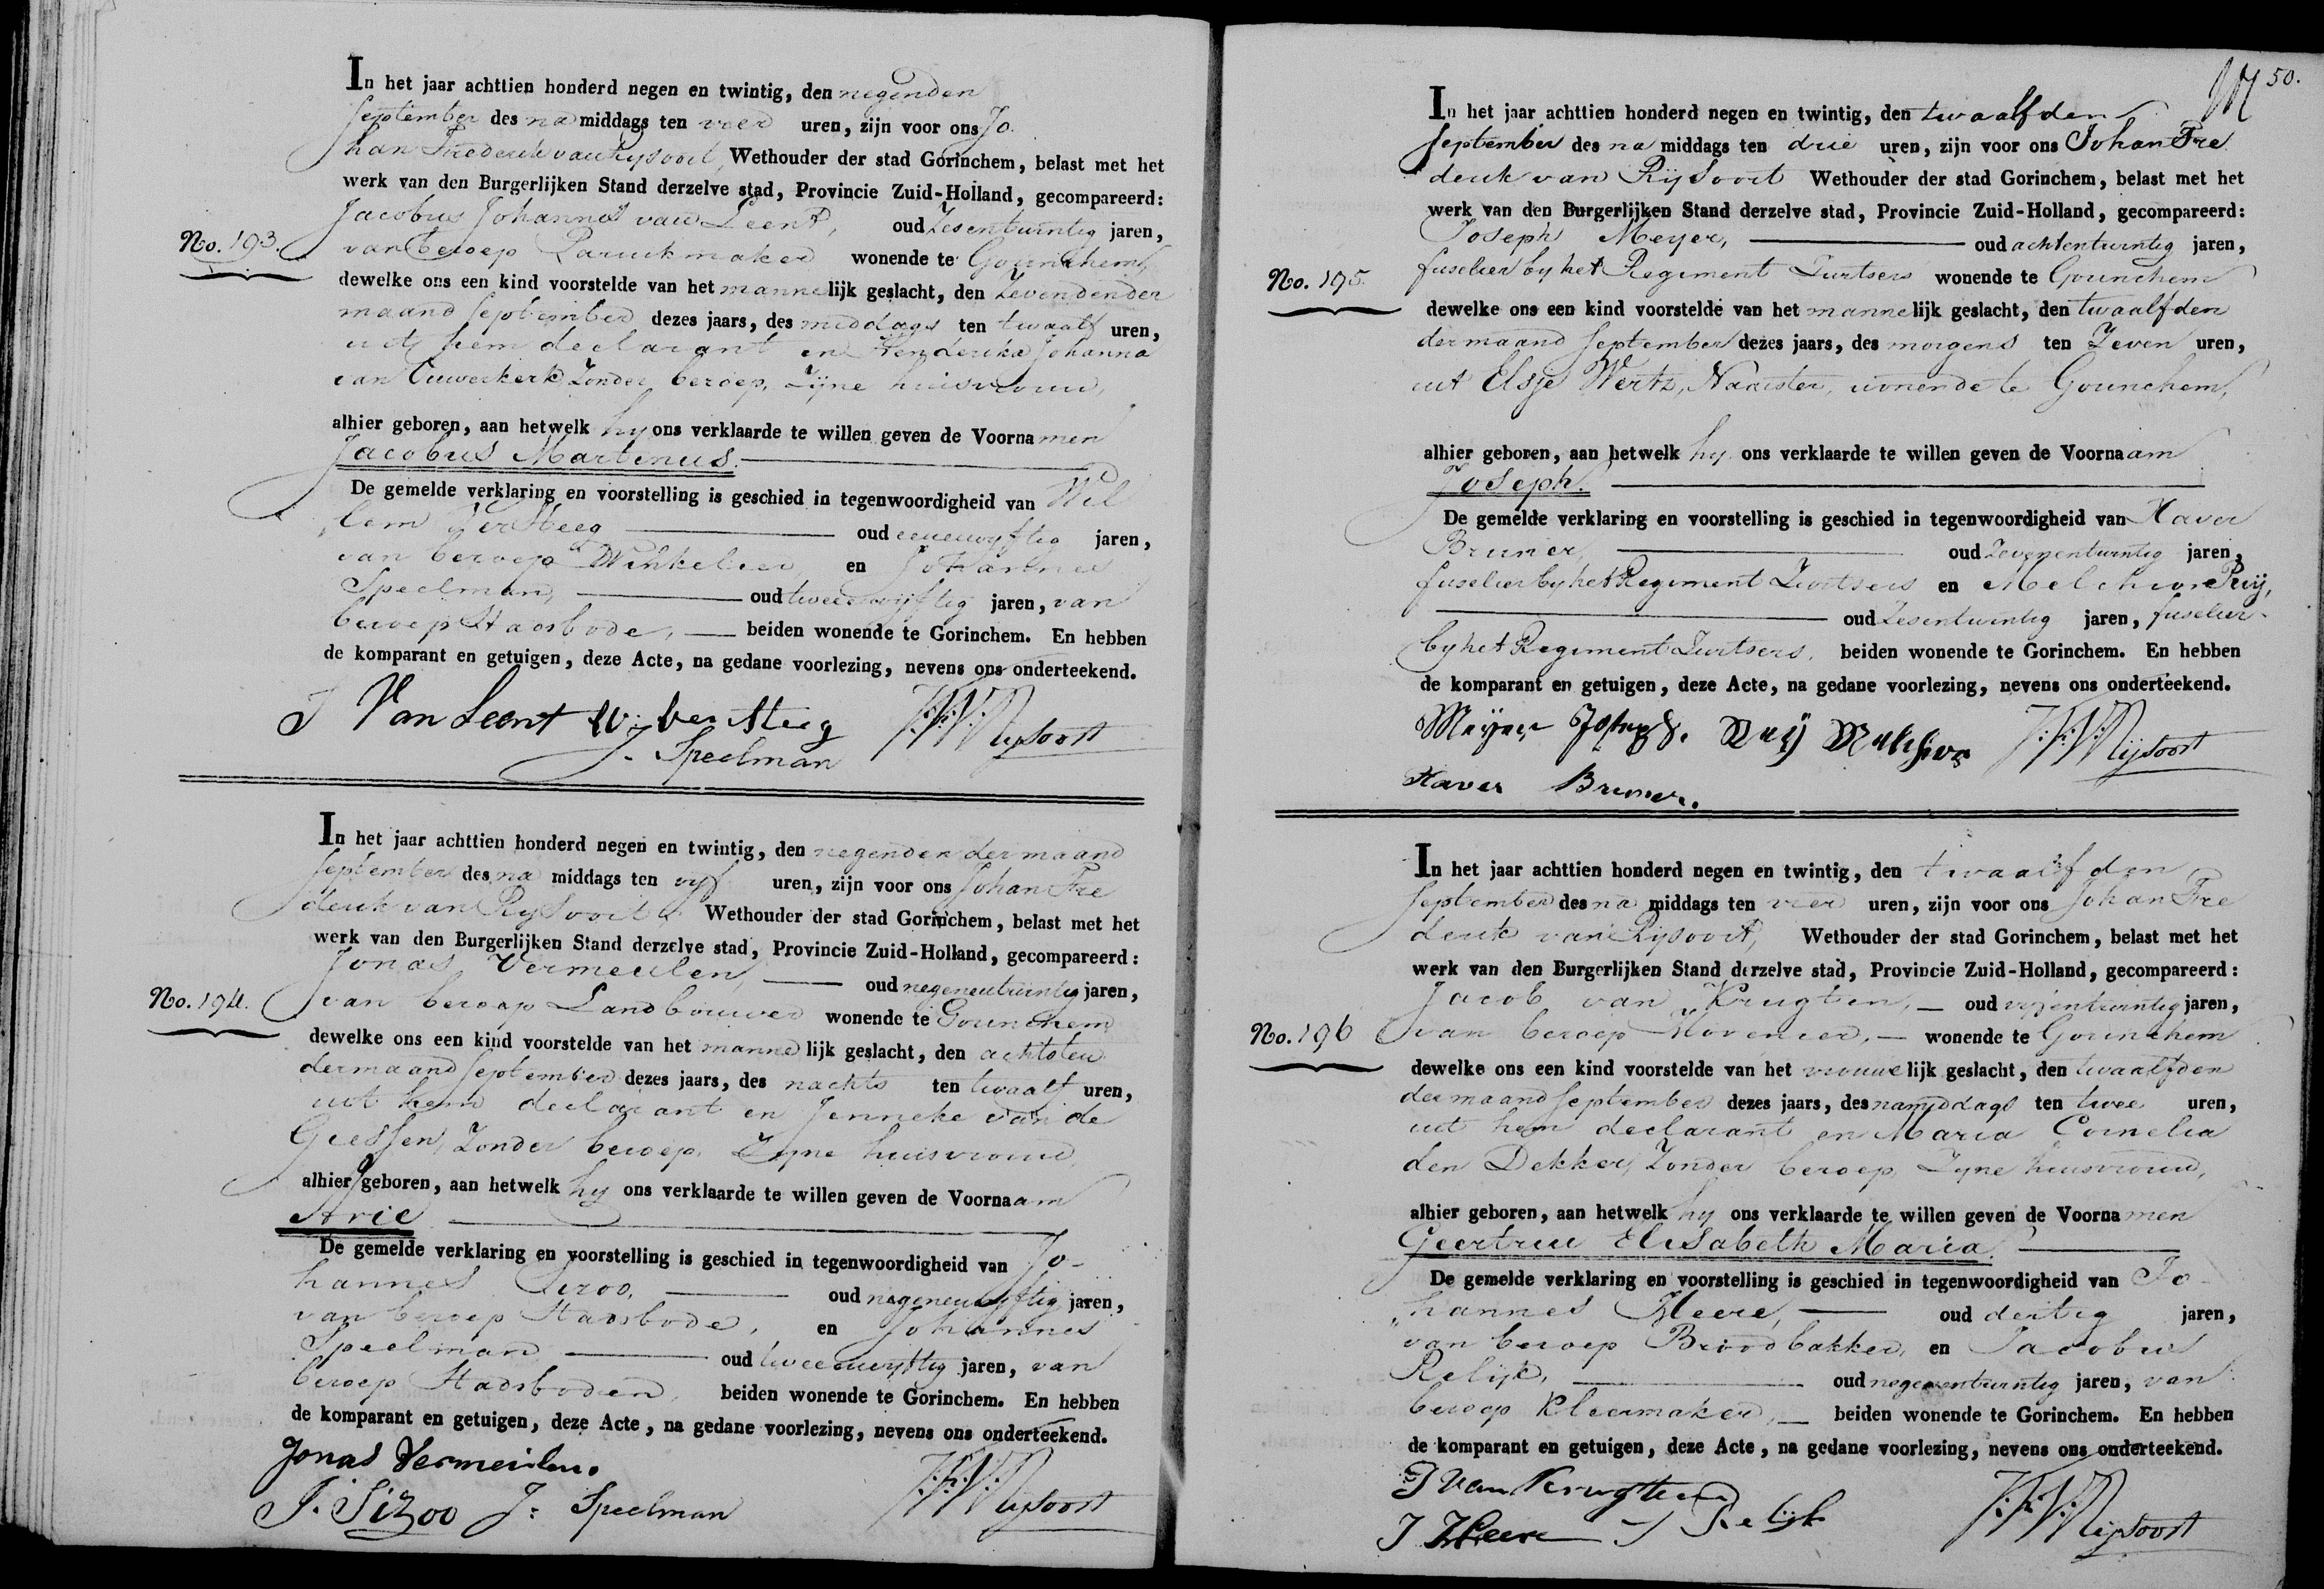 In het jaar achttien honderd negen en twintig, den negenden
September des namiddags ten vier uren, zijn voor ons Jo
han Frederik van Rysoort, Wethouder der stad Gorinchem, belast met het
werk van den Burgerlijken Stand derzelve stad, Provincie Zuid-Holland, gecompareerd:
Jacobus Johannes van Leent, oud Zesentwintig jaren,
No. 193.
van beroep Paruikmaker wonende te Gorinchem,
dewelke ons een kind voorstelde van het mannelijk geslacht, den Zevenden der
maand September dezes jaars, des middags ten twaalf uren,
uit hem declarant en Henderika Johanna
van Ouwerkerk Zonder beroep, Zyne huisvrouw,
alhier geboren, aan hetwelk hy ons verklaarde te willen geven de Voornamen
Jacobus Martinus.
De gemelde verklaring en voorstelling is geschied in tegenwoordigheid van Wil
lem VerSteeg oud eenenvyftig jaren,
van beroep Winkelier, en Johannes
Speelman, oud tweeenvyftig jaren, van
beroep Stadsbode, beiden wonende te Gorinchem. En hebben
de komparant en getuigen, deze Acte, na gedane voorlezing, nevens ons onderteekend.
J Van Leent W: ver Steeg J:F:V:Rijsoort
J. Speelman
In het jaar achttien honderd negen en twintig, den negenden der maand
September des na middags ten vyf uren, zijn voor ons Johan Fre
derik van RySoort, Wethouder der stad Gorinchem, belast met het
werk van den Burgerlijken Stand derzelve stad, Provincie Zuid-Holland, gecompareerd:
Jonas Vermeulen, oud negenentwintig jaren,
No. 194.
van beroep Landbouwer wonende te Gorinchem
dewelke ons een kind voorstelde van het mannelijk geslacht, den achtsten
der maand September dezes jaars, des nachts ten twaalf uren,
uit hem declarant en Jenneke van de
Giessen, Zonder beroep, Zyne huisvrouw,
alhier geboren, aan hetwelk hy ons verklaarde te willen geven de Voornaam
Arie
De gemelde verklaring en voorstelling is geschied in tegenwoordigheid van Jo-
hannes Sizoo, oud negenenvyftig jaren,
van beroep Stadsbode, en Johannes
Speelman oud tweeenvyftig jaren, van
beroep Stadsboden, beiden wonende te Gorinchem. En hebben
de komparant en getuigen, deze Acte, na gedane voorlezing, nevens ons onderteekend.
Jonas Vermeulen.
J. Sizoo J: Speelman J:F:V:Rijsoort
50.
In het jaar achttien honderd negen en twintig, den twaalfden
September des na middags ten drie uren, zijn voor ons Johan Fre
derik van RijSoort Wethouder der stad Gorinchem, belast met het
werk van den Burgerlijken Stand derzelve stad, Provincie Zuid-Holland, gecompareerd:
Joseph Meyer, oud achtentwintig jaren,
No. 195.
fuselier by het Regiment Zwitsers wonende te Gorinchem
dewelke ons een kind voorstelde van het mannelijk geslacht, den twaalfden
der maand September dezes jaars, des morgens ten Zeven uren,
uit Elsje Wertz, Naaister, wonende te Gorinchem,
alhier geboren, aan hetwelk hy ons verklaarde te willen geven de Voornaam
Joseph.
De gemelde verklaring en voorstelling is geschied in tegenwoordigheid van Xaver
Bruner, oud Zevenentwintig jaren,
fuselier by het Regiment Zwitsers en Melchior Reij,
oud Zesentwintig jaren, fuselier
by het Regiment Zwitsers, beiden wonende te Gorinchem. En hebben
de komparant en getuigen, deze Acte, na gedane voorlezing, nevens ons onderteekend.
Meyer Joseph. Reij Melchior J:F:V:Rijsoort
Xaver Bruner.
In het jaar achttien honderd negen en twintig, den twaalfden
September des na middags ten vier uren, zijn voor ons Johan Fre
derik van Rijsoort, Wethouder der stad Gorinchem, belast met het
werk van den Burgerlijken Stand derzelve stad, Provincie Zuid-Holland, gecompareerd:
Jacob van Krugten, oud vyfentwintig jaren,
No. 196
van beroep Hovenier, wonende te Gorinchem
dewelke ons een kind voorstelde van het vrouwelijk geslacht, den twaalfden
der maand September dezes jaars, des namiddags ten twee uren,
uit hem declarant en Maria Cornelia
den Dekker, Zonder beroep, Zyne huisvrouw,
alhier geboren, aan hetwelk hy ons verklaarde te willen geven de Voornamen
Geertrui Elisabeth Maria.
De gemelde verklaring en voorstelling is geschied in tegenwoordigheid van Jo-
hannes Heere, oud dertig jaren,
van beroep Broodbakker, en Jacobus
Relijk, oud negenentwintig jaren, van
beroep Kleermaker, beiden wonende te Gorinchem. En hebben
de komparant en getuigen, deze Acte, na gedane voorlezing, nevens ons onderteekend.
J van Krugten
J Heere J Relijk J:F:V:Rijsoort